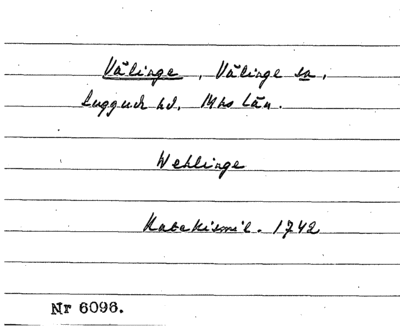 Välinge, Välinge sn,
Luggude hd, Mhs län.
Wehlinge
Katekismil. 1742
Nr 6096.